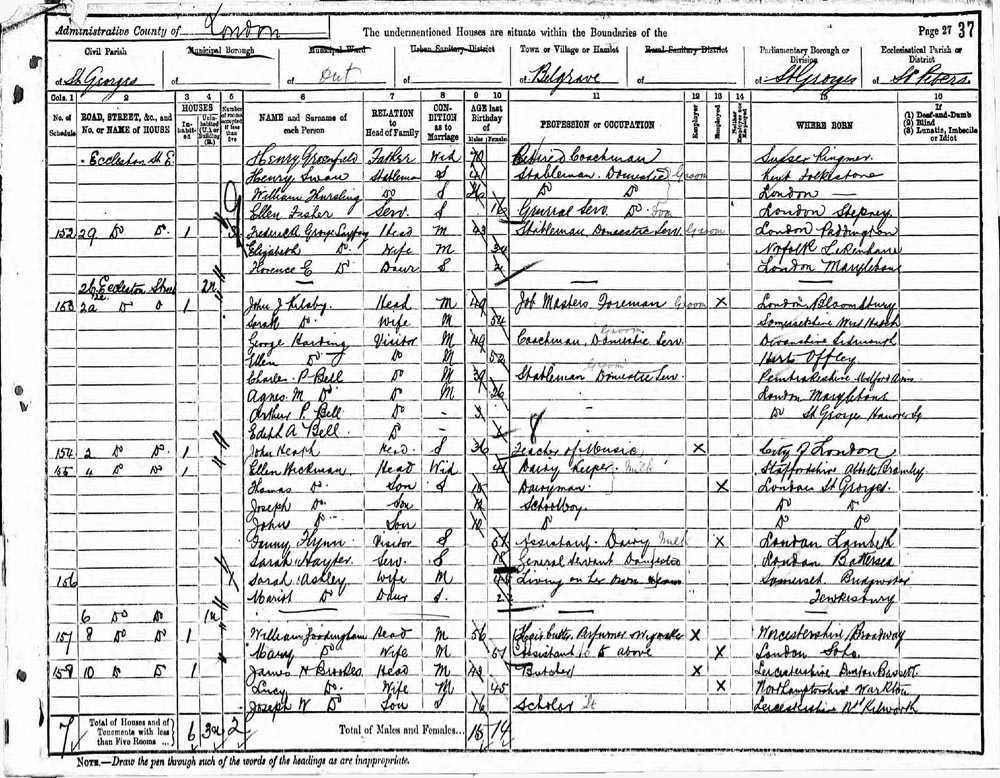 Administrative County of London The undermentioned Houses are situate within the Boundaries of the Page 27 37
Civil Parish Municipal Borough Municipal Ward Urban Sanitary District Town or Village or Hamlet Rural Sanitary District Parliamentary Borough or Division Ecclesiastical Parish or District
of St Georges of of Out of of Belgrave of of St Georges of St Peters
Cols. 1 2 3 4 5 6 7 8 9 10 11 12 13 14 15 16
No. of Schedule ROAD, STREET, &c., and No. or NAME of HOUSE HOUSES Inhabited Uninhabited (U.) or Building (B.) Number of rooms occupied if less than five NAME and Surname of each Person RELATION to Head of Family CONDITION as to Marriage AGE last Birthday of Males Females PROFESSION or OCCUPATION Employer Employed Neither Employer nor Employed WHERE BORN If (1) Deaf-and-Dumb (2) Blind (3) Lunatic, Imbecile or Idiot
Eccleston St E. Henry Greenfield Father Wid 70 Retired Coachman Sussex Ringmer
Henry Swan Stableman S 41 Stableman Domestic Groom Kent Folkstone
William Do S 26 Do Do London
Ellen Fisher Serv. S 16 General Serv. Do London Stepney
152 29 Do Do 1 3 Frederick George Head M 43 Stableman, Domestic Serv Groom London Paddington
Elizabeth Do Wife M 34 Norfolk
Florence E Do Daur S 2 London Marylebone
26 Eccleston Street 2u
153 2a Do Do 1 John J Kilsby Head M 49 Job Masters Foreman Groom X London Bloomsbury
Sarah Do Wife M 54 Somersetshire West Hatch
George Harding Visitor M 49 Coachman, Domestic Serv. Groom Devonshire Sidmouth
Ellen Do Do M 52 Herts Offley
Charles P Bell Do M 39 Stableman Domestic Serv. Groom Pembrokeshire Milford
Agnes M Do Do M 26 London Marylebone
Arthur P. Bell Do - Do St Georges Hanover Sq
Edith A Bell Do
154 2 Do Do 1 John Heath Head S 36 Teacher of Music X City of London
155 4 Do Do 1 Ellen Hickman Head Wid 41 Dairy Keeper Milk Staffordshire Abbots Bromley
Thomas Do Son S 15 Dairyman X London St Georges
Joseph Do Son 12 Schoolboy Do Do
John Do Son 10 Do Do Do
Fanny Flynn Visitor S 51 Assistant Dairy Milk X London Lambeth
Sarah Hayter Serv. S 18 General Servant Domestic London Battersea
156 Sarah Astley Wife M 45 Living on her own means Somerset Bridgwater
Marion Do Daur S. 22 Tewkesbury
6 Do Do 1u
157 8 Do Do 1 William Head M 56 Hair Cutter, Perfumer & Wigmaker X Worcestershire, Broadway
Mary Do Wife M 51 Assistant to above X London Soho
158 10 Do Do 1 James H Brookes Head M 43 Butcher X Leicestershire Burton
Lucy Do Wife M 45 X Northamptonshire Warkton
Joseph W Do Son S 16 Scholar Leicestershire Kilworth
7 Total of Houses and of Tenements with less than Five Rooms ... 6 3u 2 Total of Males and Females... 15 14
NOTE.—Draw the pen through such of the words of the headings as are inappropriate.